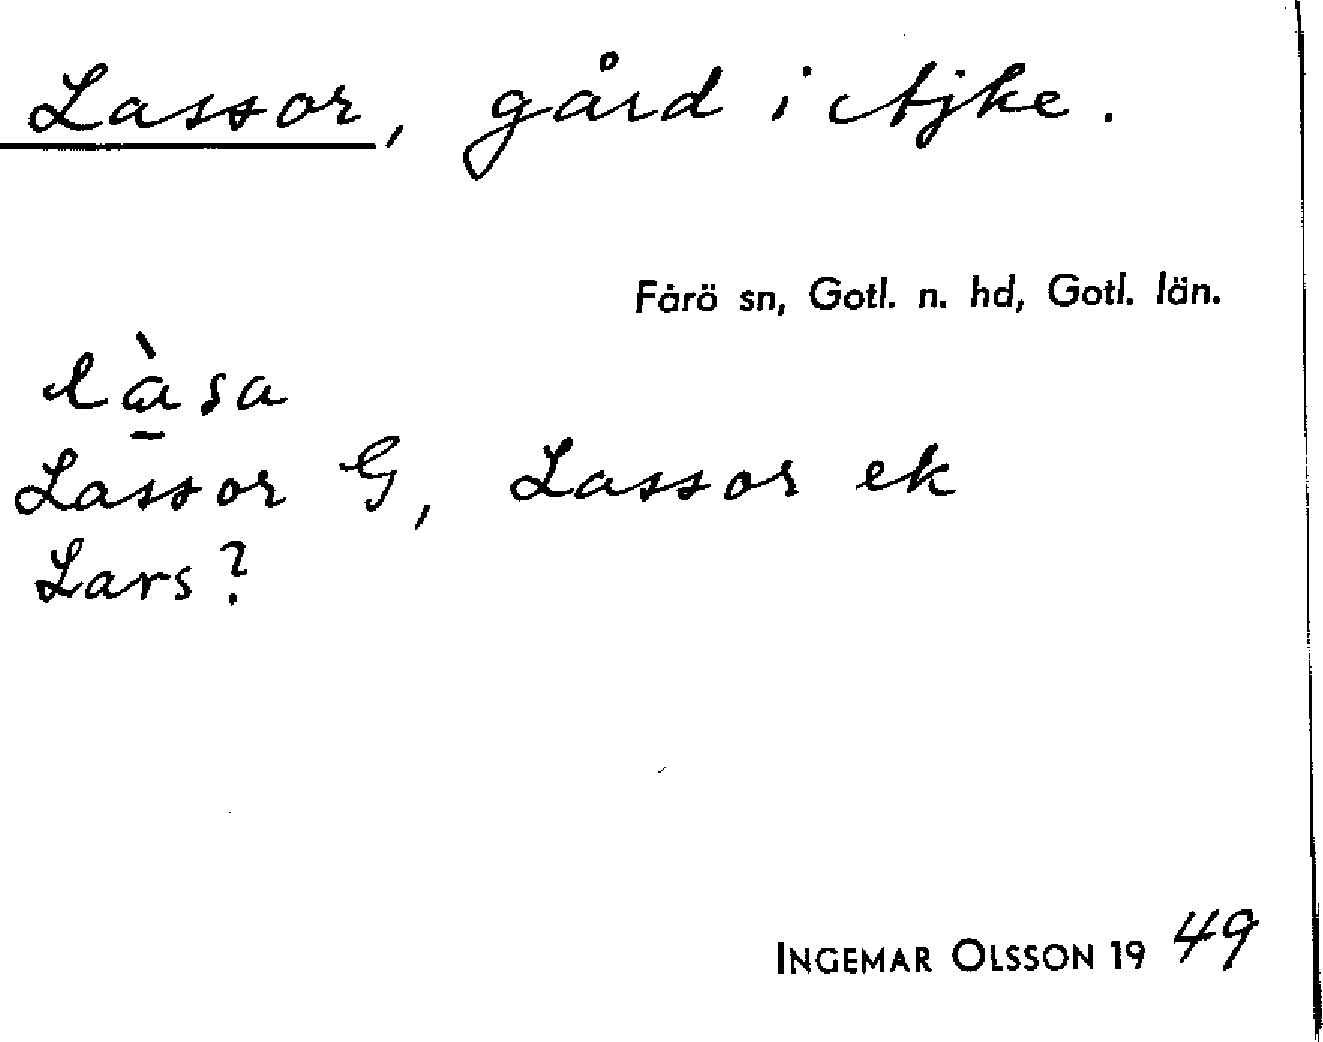 Lassor, gård i Ajke.
Fårö sn, Gotl. n. hd, Gotl. län.
là̱sa
Lassor G, Lassor ek
Lars?
INGEMAR OLSSON 1949